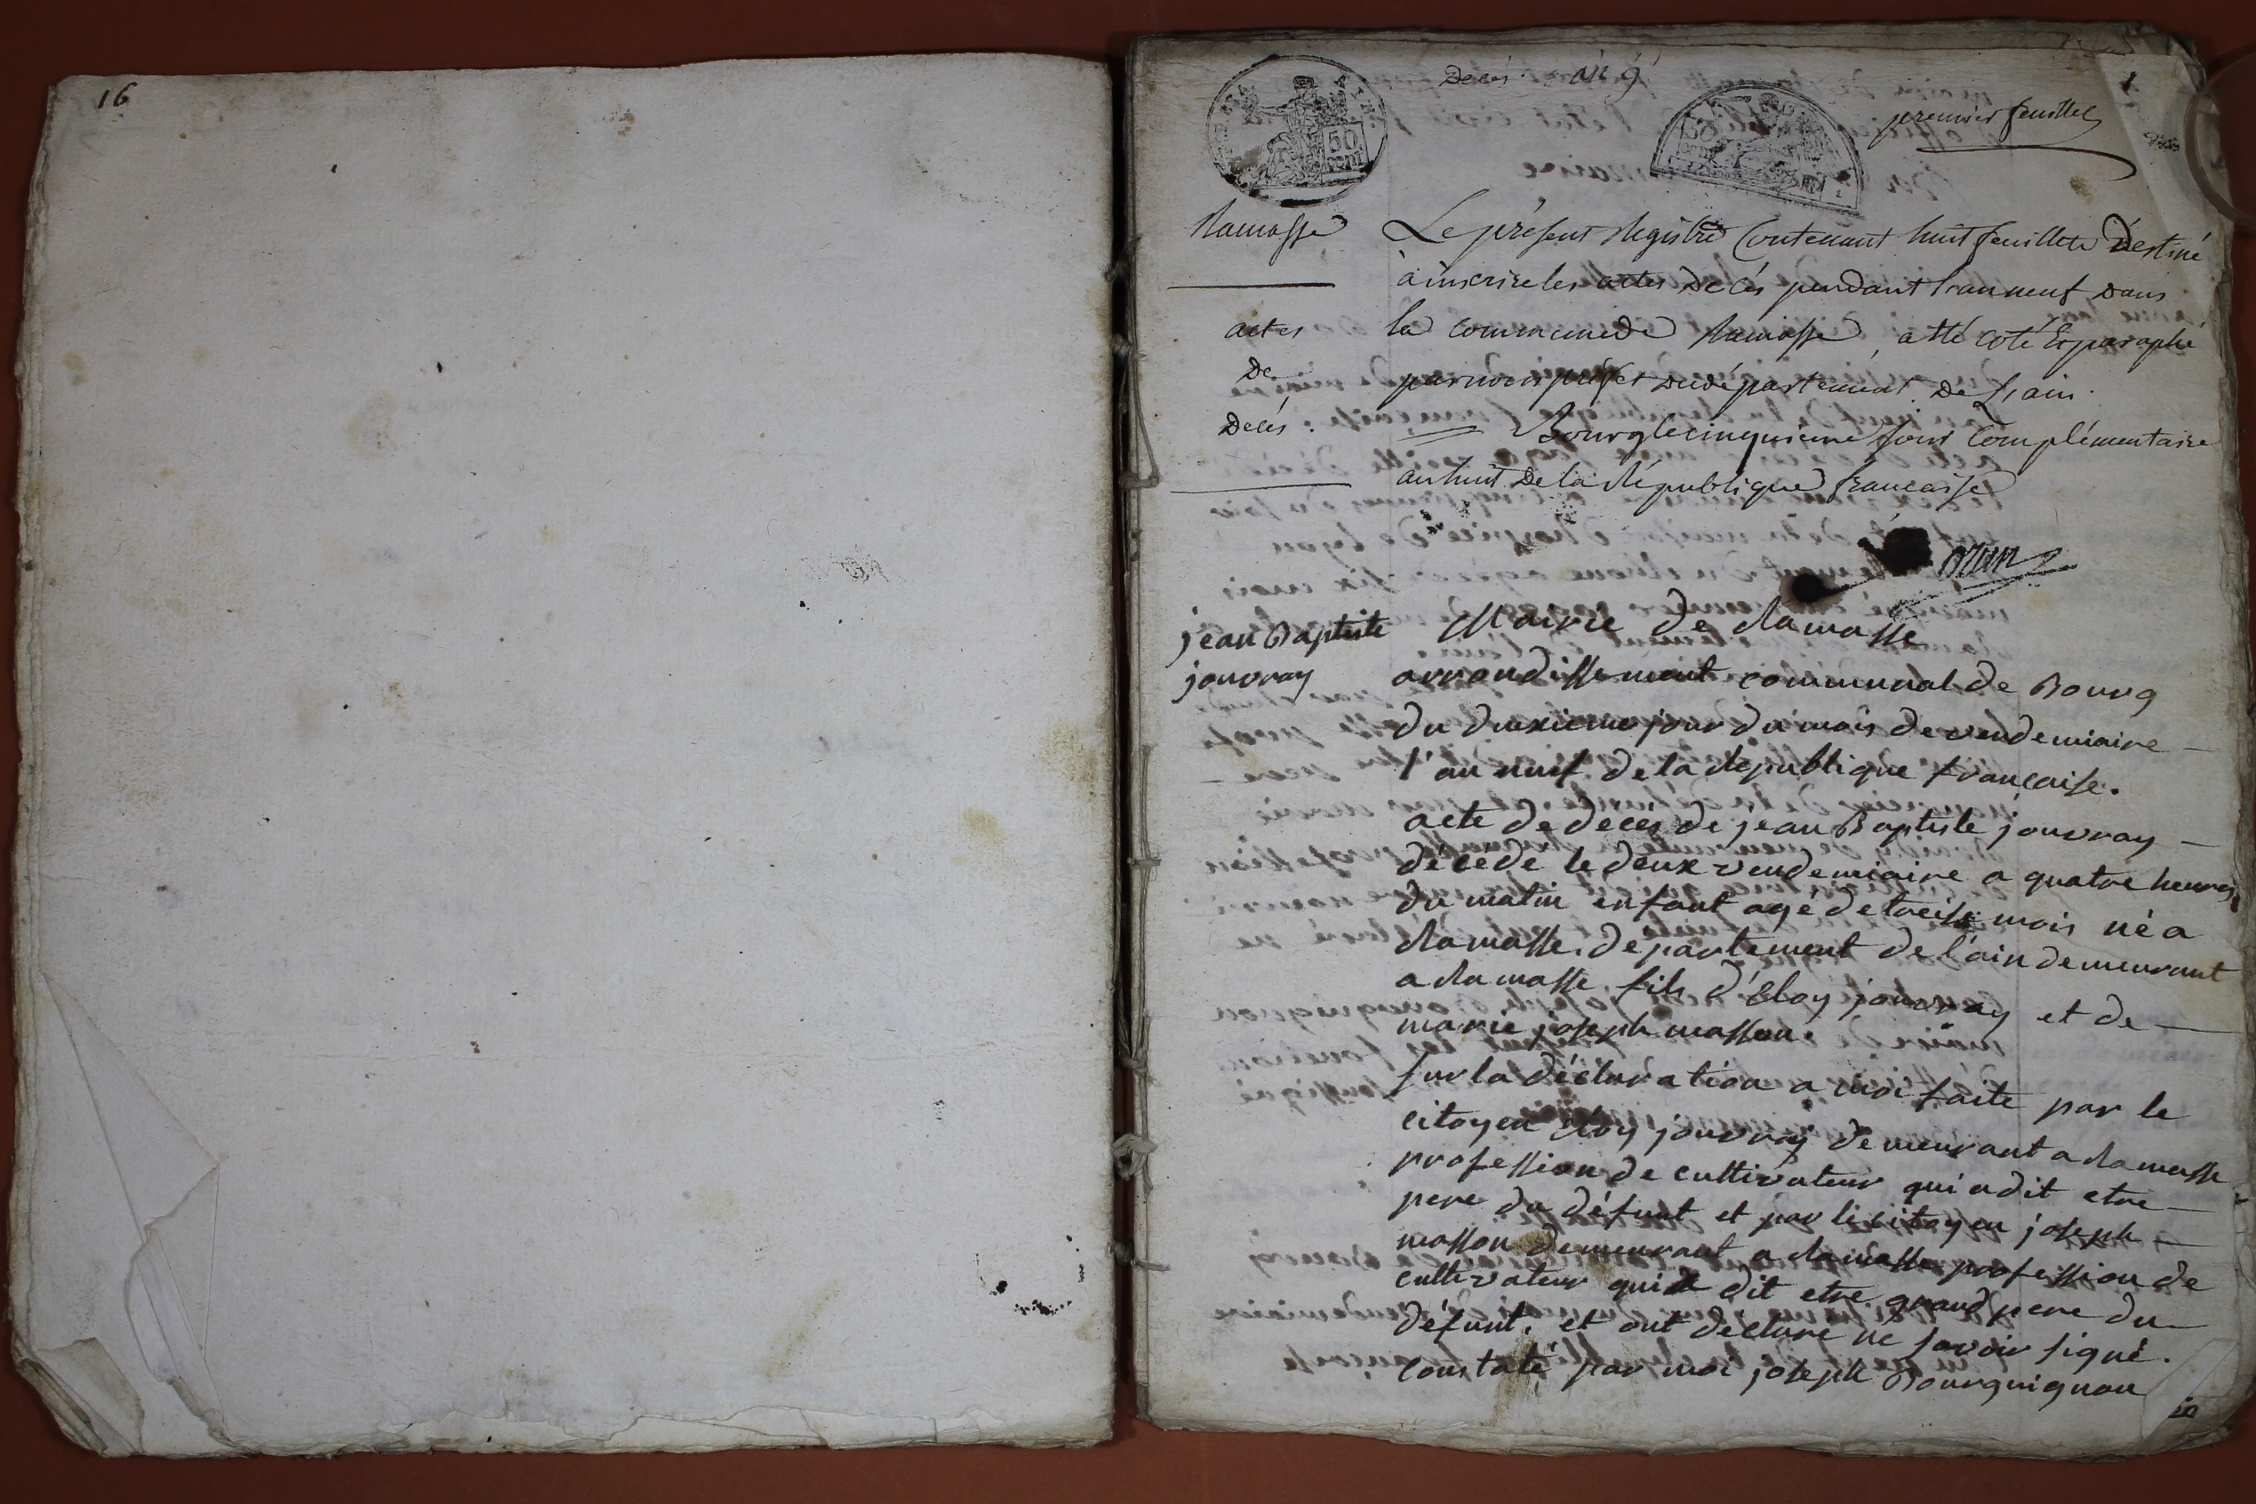 16
Decés. an 9
1
premier feuillet
50
cent
50
Ramasse
actes
De
Décés.
Le présent Registre Contenant huit feuillets Destiné
à inscrire les actes Décés pendant l'an neuf Dans
la commune de Ramasse, a été coté & paraphé
par nous préfet du département De L'ain.
Bourg le cinquieme jour Complémentaire
an huit De la République française
jean Baptiste
jouvray
Mairie de Ramasse
arrondissement communal de Bourg
du deuxieme jour du mois de vendemiaire –
l'an neuf de la Republique francaise.
acte de deces de jean Baptiste jouvray –
décédé le deux vendemiaire a quatre heures
du matin enfant agé de treise mois né a
Ramasse, département de l'ain demeurant
a Ramasse fils d'Eloy jouvray et de –
marie joseph masson.
sur la déclaration a moi faite par le
citoyen Eloy jouvray demeurant a Ramasse
profession de cultivateur qui a dit etre –
pere du défunt et par le citoyen joseph –
masson demeurant a Ramasse profession de
cultivateur qui a dit etre grand pere du
défunt. et ont declaré ne savoir signé.
Constaté par moi joseph Bourguignon